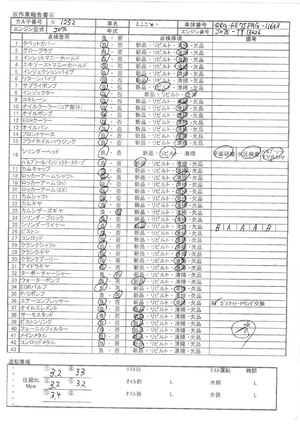 ※作業報告書※
カルテ番号 N 1252 車名 車体番号
エンジン型式 J07E 年式 エンジン番号 J07E-
点検箇所 点検事項 備考
1 ラペットカバー 良・否 新品・リビルト・清掃・欠品
2 グロープラグ 良・否 新品・リビルト・清掃・欠品
3 インテークマニホールド 良・否 新品・リビルト・清掃・欠品
4 エキゾーストマニーホールド 良・否 新品・リビルト・清掃・欠品
5 インジェクションパイプ 良・否 新品・リビルト・清掃・欠品
6 リターンパイプ 良・否 新品・リビルト・清掃・欠品
7 サプライポンプ 良・否 新品・リビルト・清掃・欠品
8 インジェクター 良・否 新品・リビルト・清掃・欠品
9 コモレーン 良・否 新品・リビルト・清掃・欠品
10 オイルクーラー(コア部分) 良・否 新品・リビルト・清掃・欠品
11 オイルポンプ 良・否 新品・リビルト・清掃・欠品
12 EGRクーラー 良・否 新品・リビルト・清掃・欠品
13 オイルパン 良・否 新品・リビルト・清掃・欠品
14 フロントケース 良・否 新品・リビルト・清掃・欠品
15 フライホイルハウジング 良・否 新品・リビルト・清掃・欠品
16 シリンダーヘッド 良・否 新品・リビルト・清掃
17 カムキャップ 良・否 新品・リビルト・清掃・欠品
18 ロッカーアームシャフト 良・否 新品・リビルト・清掃・欠品
19 ロッカーアーム(In) 良・否 新品・リビルト・清掃・欠品
20 ロッカーアーム(EX) 良・否 新品・リビルト・清掃・欠品
21 カムシャフト 良・否 新品・リビルト・清掃・欠品
22 カムギヤ 良・否 新品・リビルト・清掃・欠品
23 カムシザーズギヤ 良・否 新品・リビルト・清掃・欠品
24 シリンダーブロック 良・否 新品・リビルト・清掃・欠品
25 シリンダーライナー 良・否 新品・リビルト・清掃・欠品 B A A A B
26 ピストン 良・否 新品・リビルト・清掃・欠品
27 コンロッド 良・否 新品・リビルト・清掃・欠品
28 クランクシャフト 良・否 新品・リビルト・清掃・欠品
29 クランクギヤ 良・否 新品・リビルト・清掃・欠品
30 クランクプーリー 良・否 新品・リビルト・清掃・欠品
31 アイドラギヤ 良・否 新品・リビルト・清掃・欠品
32 ターボーチャージャー 良・否 新品・リビルト・清掃・欠品
33 ウォーターポンプ 良・否 新品・リビルト・清掃・欠品
34 EGRバルブ 良・否 新品・リビルト・清掃・欠品
35 P/Sポンプ 良・否 新品・リビルト・清掃・欠品
36 エアーコンプレッサー 良・否 新品・リビルト・清掃・欠品
37 オイルエレメント 良・否 新品・リビルト・清掃・欠品
38 サーモスタッド 良・否 新品・リビルト・清掃・欠品
39 ピストンリング 良・否 新品・リビルト・清掃・欠品
40 フューエルフィルター 良・否 新品・リビルト・清掃・欠品
41 メインメタル 良・否 新品・リビルト・清掃・欠品
42 コンロッドメタル 良・否 新品・リビルト・清掃・欠品
43
追記事項
圧縮比 Mpa
① 3.2 ④ 3.3
② 3.2 ⑤ 3.2
③ 3.4
テスト日 テスト運転 時間
オイル前 L 水前 L
オイル後 L 水後 L